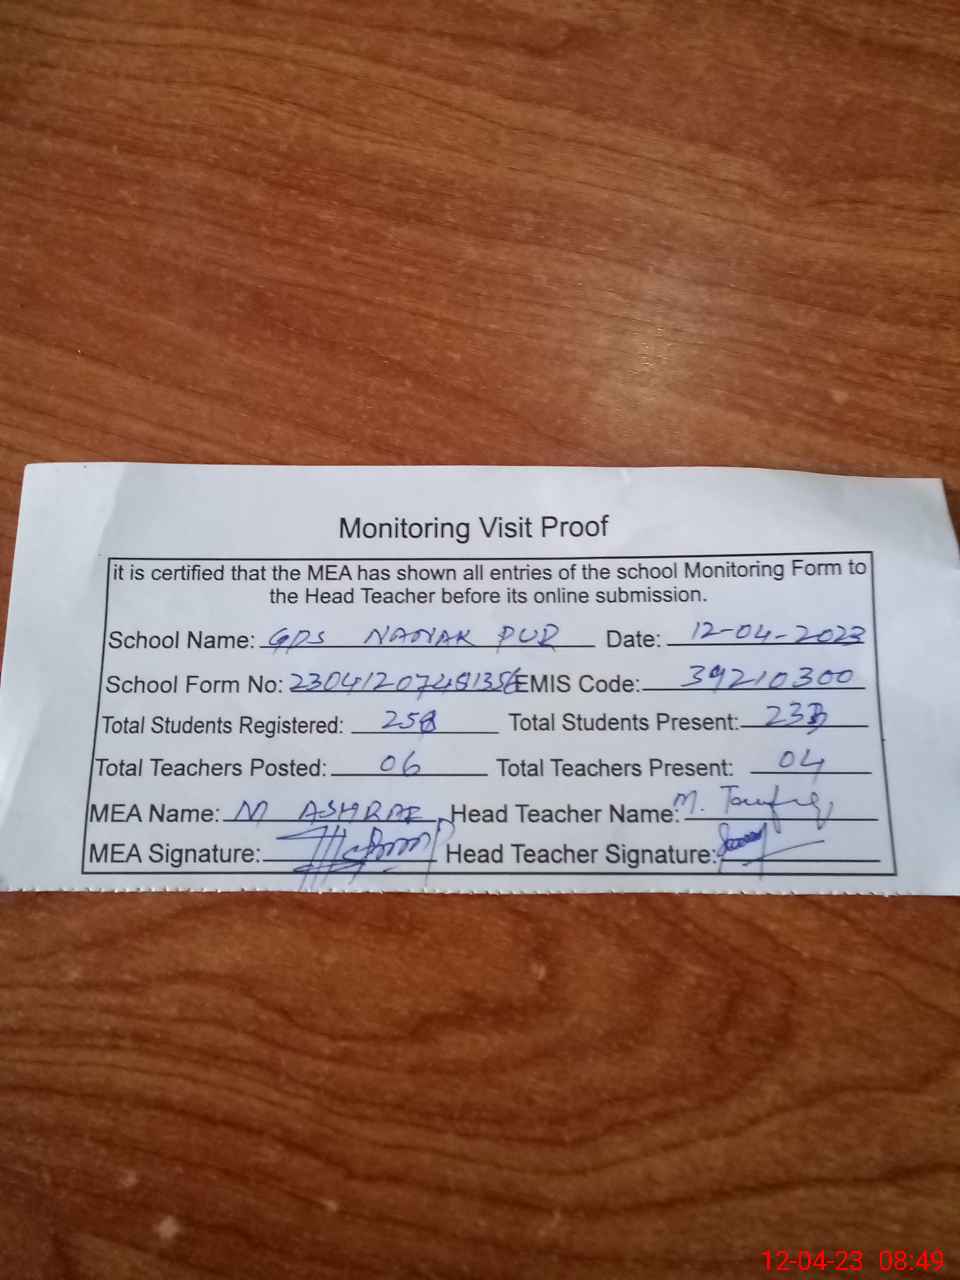 Monitoring Visit Proof
it is certified that the MEA has shown all entries of the school Monitoring Form to
the Head Teacher before its online submission.
School Name: GPS NANAK PUR Date: 12-04-2023
School Form No: EMIS Code: 39210300
Total Students Registered: 258 Total Students Present: 233
Total Teachers Posted: 06 Total Teachers Present: 04
MEA Name: M ASHRAF Head Teacher Name: M.
MEA Signature: Head Teacher Signature:
12-04-23 08:49